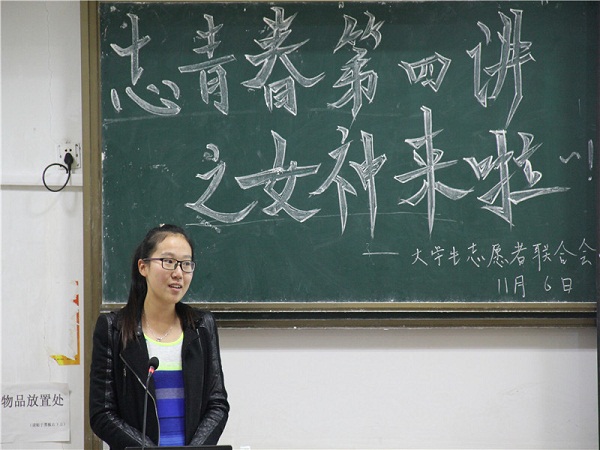 志青春第四讲
之女神来啦~!
——大学生志愿者联合会
11月6日
物品放置处